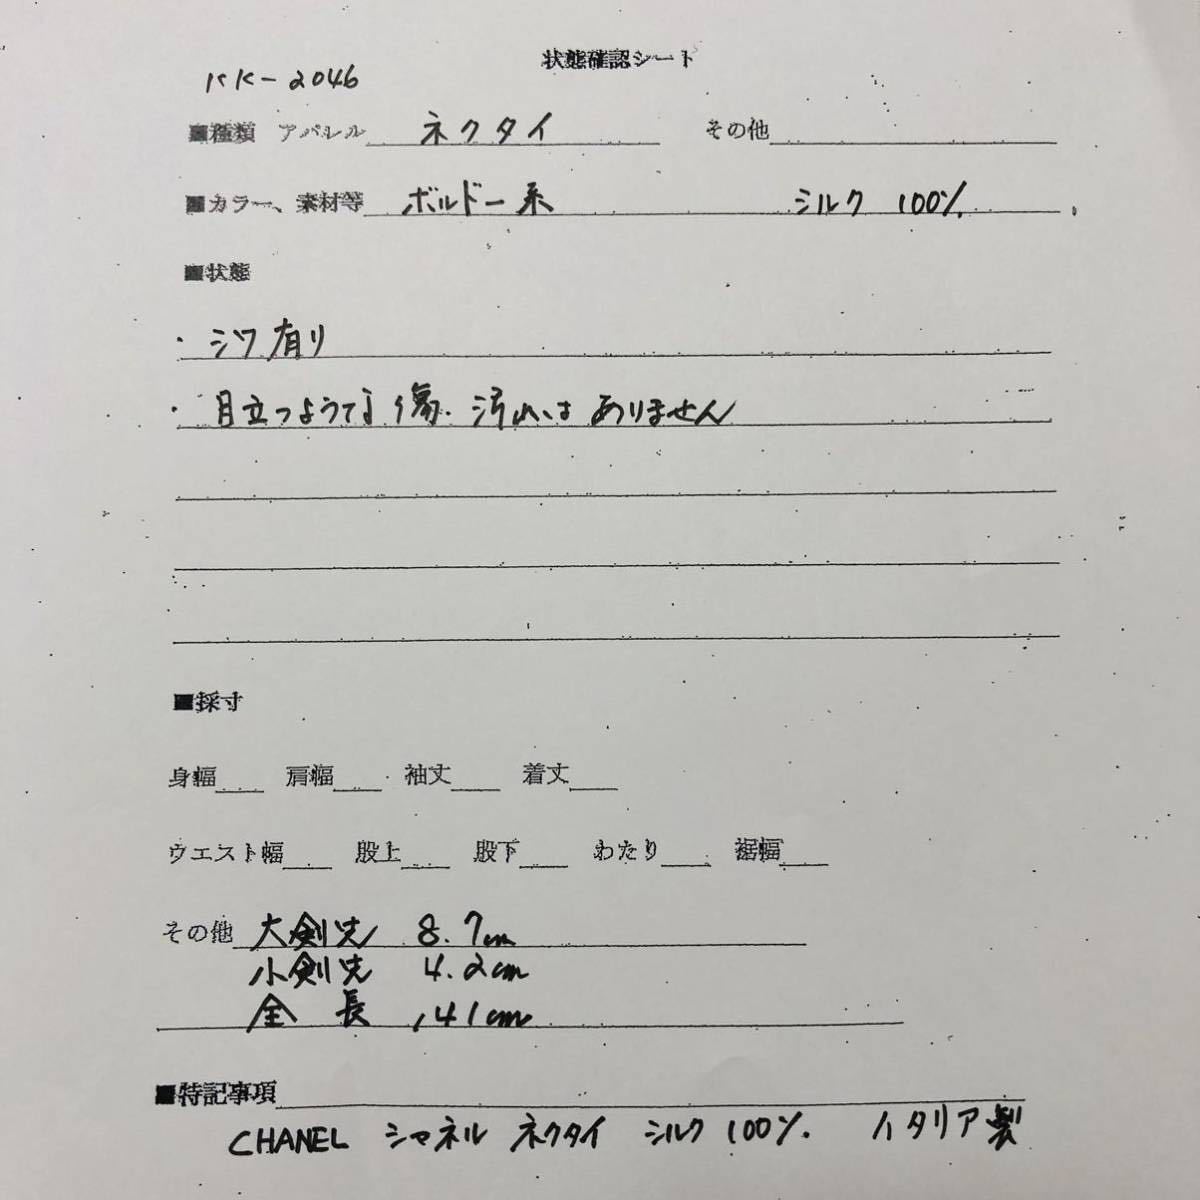 状態確認シート
KK-2046
■種類 アパレル ネクタイ その他
■カラー、素材等 ボルドー系 シルク 100%
■状態
・シワ有り
・目立つような傷・汚れはありません
■採寸
身幅 肩幅 袖丈 着丈
ウエスト幅 股上 股下 わたり 裾幅
その他 大剣先 8.7cm
小剣先 4.2cm
全長 141cm
■特記事項
CHANEL シャネル ネクタイ シルク 100% イタリア製